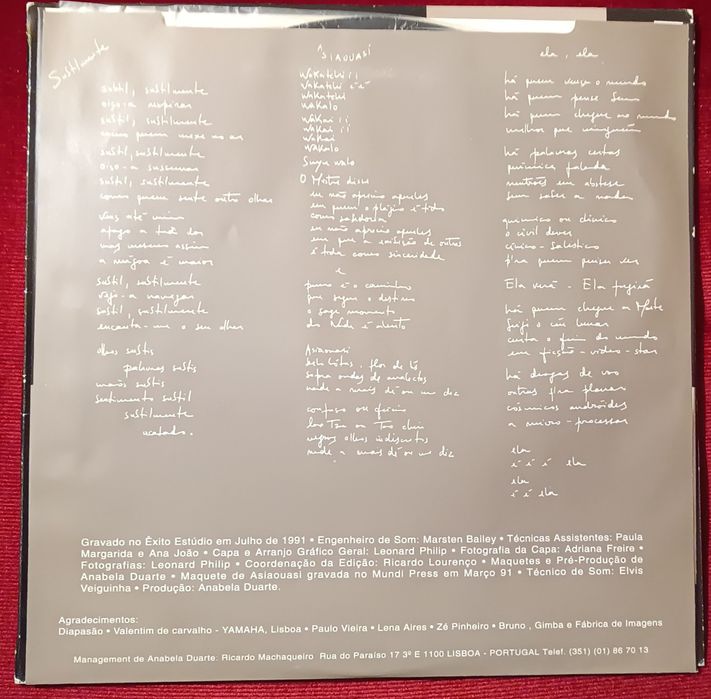 Sustilmente
subtil, sustilmente
oiço-a suspirar
sustil, sustilmente
como quem mexe no ar
sustil, sustilmente
oiço-a sussurrar
sustil, sustilmente
como quem sente outro olhar
vens até mim
apago a luz dos
mas mesmo assim
a mágoa é maior
sustil, sustilmente
vejo-a navegar
sustil, sustilmente
encanta-me o seu olhar
olhos sustis
palavras sustis
mãos sustis
sentimento sustil
sustilmente
acatado.
ˆSIAOUASI
Wakatchi ii
Wakatchi éé
Wakatchi
Wakalo
Wakai ii
Wakai ii
Wakai
Wakalo
Suyu walo
O Mestre disse
eu não aprecio aqueles
em quem o plágio é tido
como sabedoria
eu não aprecio aqueles
em que a imitação de outros
é tida como sinceridade
e
puro é o caminho
que segue o destino
o sage momento
do Nada é alento
Asiaouasi
flor de lis
sopra ondas de analectos
nada a mais dê ou me diz
confuso ou
Lao Tzu ou Tao
olhos indiscretos
nada a mais dê ou me diz
ela, ela
há quem vença o mundo
há quem pense
há quem chegue ao mundo
melhor que ninguém
há palavras certas
química falada
neutrões em
sem saber a nada
químico ou clínico
o civil dever
cínico -
p'ra quem quiser ver
Ela verá - Ela fugirá
há quem chegue a Marte
o céu lunar
curta o fim do mundo
em ficção - video - star
há drogas de voo
outras p'ra planar
cósmicos andróides
a micro - processar
ela
é é é ela
ela
é é ela
Gravado no Êxito Estúdio em Julho de 1991 • Engenheiro de Som: Marsten Bailey • Técnicas Assistentes: Paula
Margarida e Ana João • Capa e Arranjo Gráfico Geral: Leonard Philip • Fotografia da Capa: Adriana Freire •
Fotografias: Leonard Philip • Coordenação da Edição: Ricardo Lourenço • Maquetes e Pré-Produção de
Anabela Duarte • Maquete de Asiaouasi gravada no Mundi Press em Março 91 • Técnico de Som: Elvis
Veiguinha • Produção: Anabela Duarte.
Agradecimentos:
Diapasão • Valentim de carvalho - YAMAHA, Lisboa • Paulo Vieira • Lena Aires • Zé Pinheiro • Bruno , Gimba e Fábrica de Imagens
Management de Anabela Duarte: Ricardo Machaqueiro Rua do Paraíso 17 3º E 1100 LISBOA - PORTUGAL Telef. (351) (01) 86 70 13